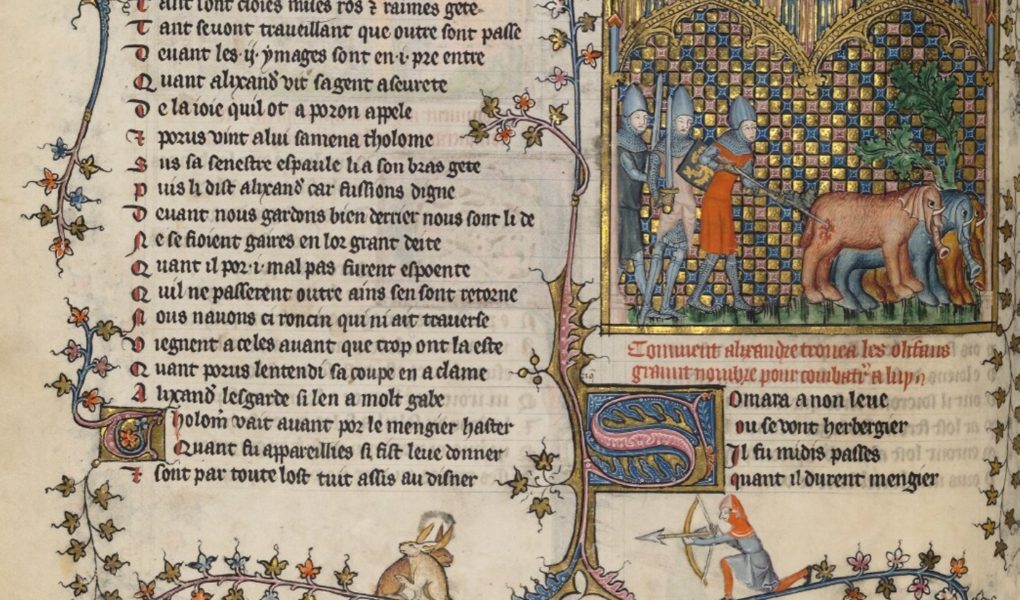 Tant sont cloies nules ros & raimes gete
Tant sevont traveillant que outre sont passe
Devant les .ij. ymages sont en .i. pre entre
Quant alixand vit sa gent aseurete
De la ioie quil ot a poron apele
& porus vint a lui samena tholome
Sus sa senestre espaule li a son bras gete
Puis li dist alixand car fussions digne
Devant nous gardons bien derrier nous sont li de
Ne se fioient gaires en lor grant deite
Quant il por .i. mal pas furent espoente
Quil ne passerent outre ains sen sont retorne
Nous navons ci roncin qui ni ait traverse
Viegnent a celes avant que trop ont la este
Quant porus lentendi sa coupe en a clame
Alixand lesgarde si len a molt gabe
Tholom vait avant por le mengier haster
Quant fu appareillies si fist leve donner
& sont par toute lost tuit assis au disner
Comment alixandre trouva les olifans
grant nombre pour combatr a luy
Somara a non leue
ou se vont herbergier
Il fu midis passes
quant il durent mengier